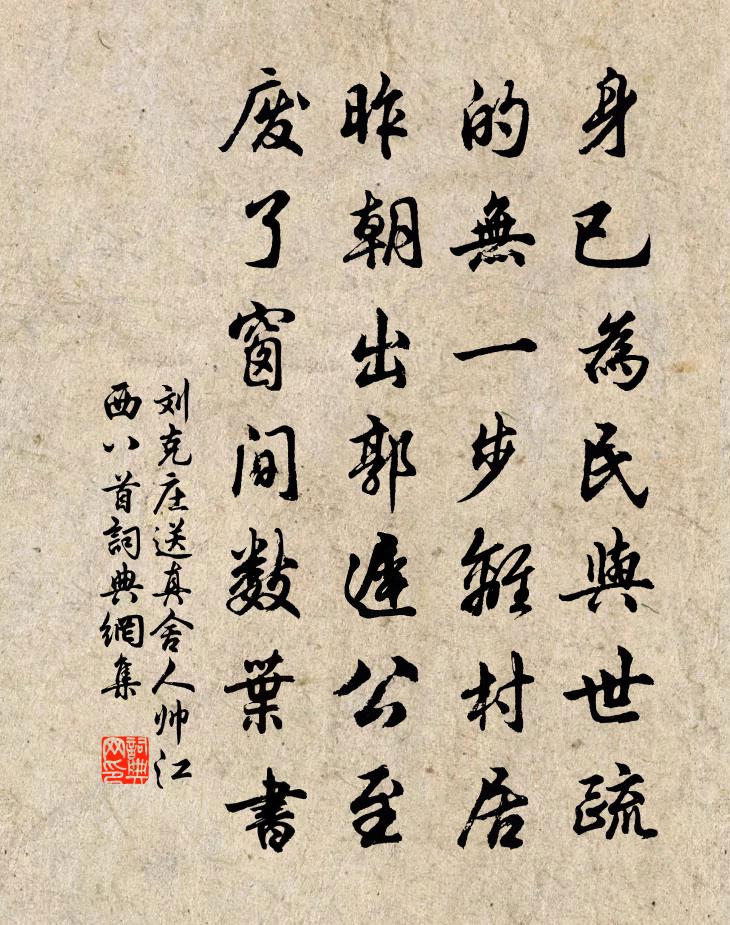 身已為民與世疏
的無一步離村居
昨朝出郭遲公至
废了窗间数葉書
刘克庄送真舍人帅江
西八首詞典網集
詞典
网印